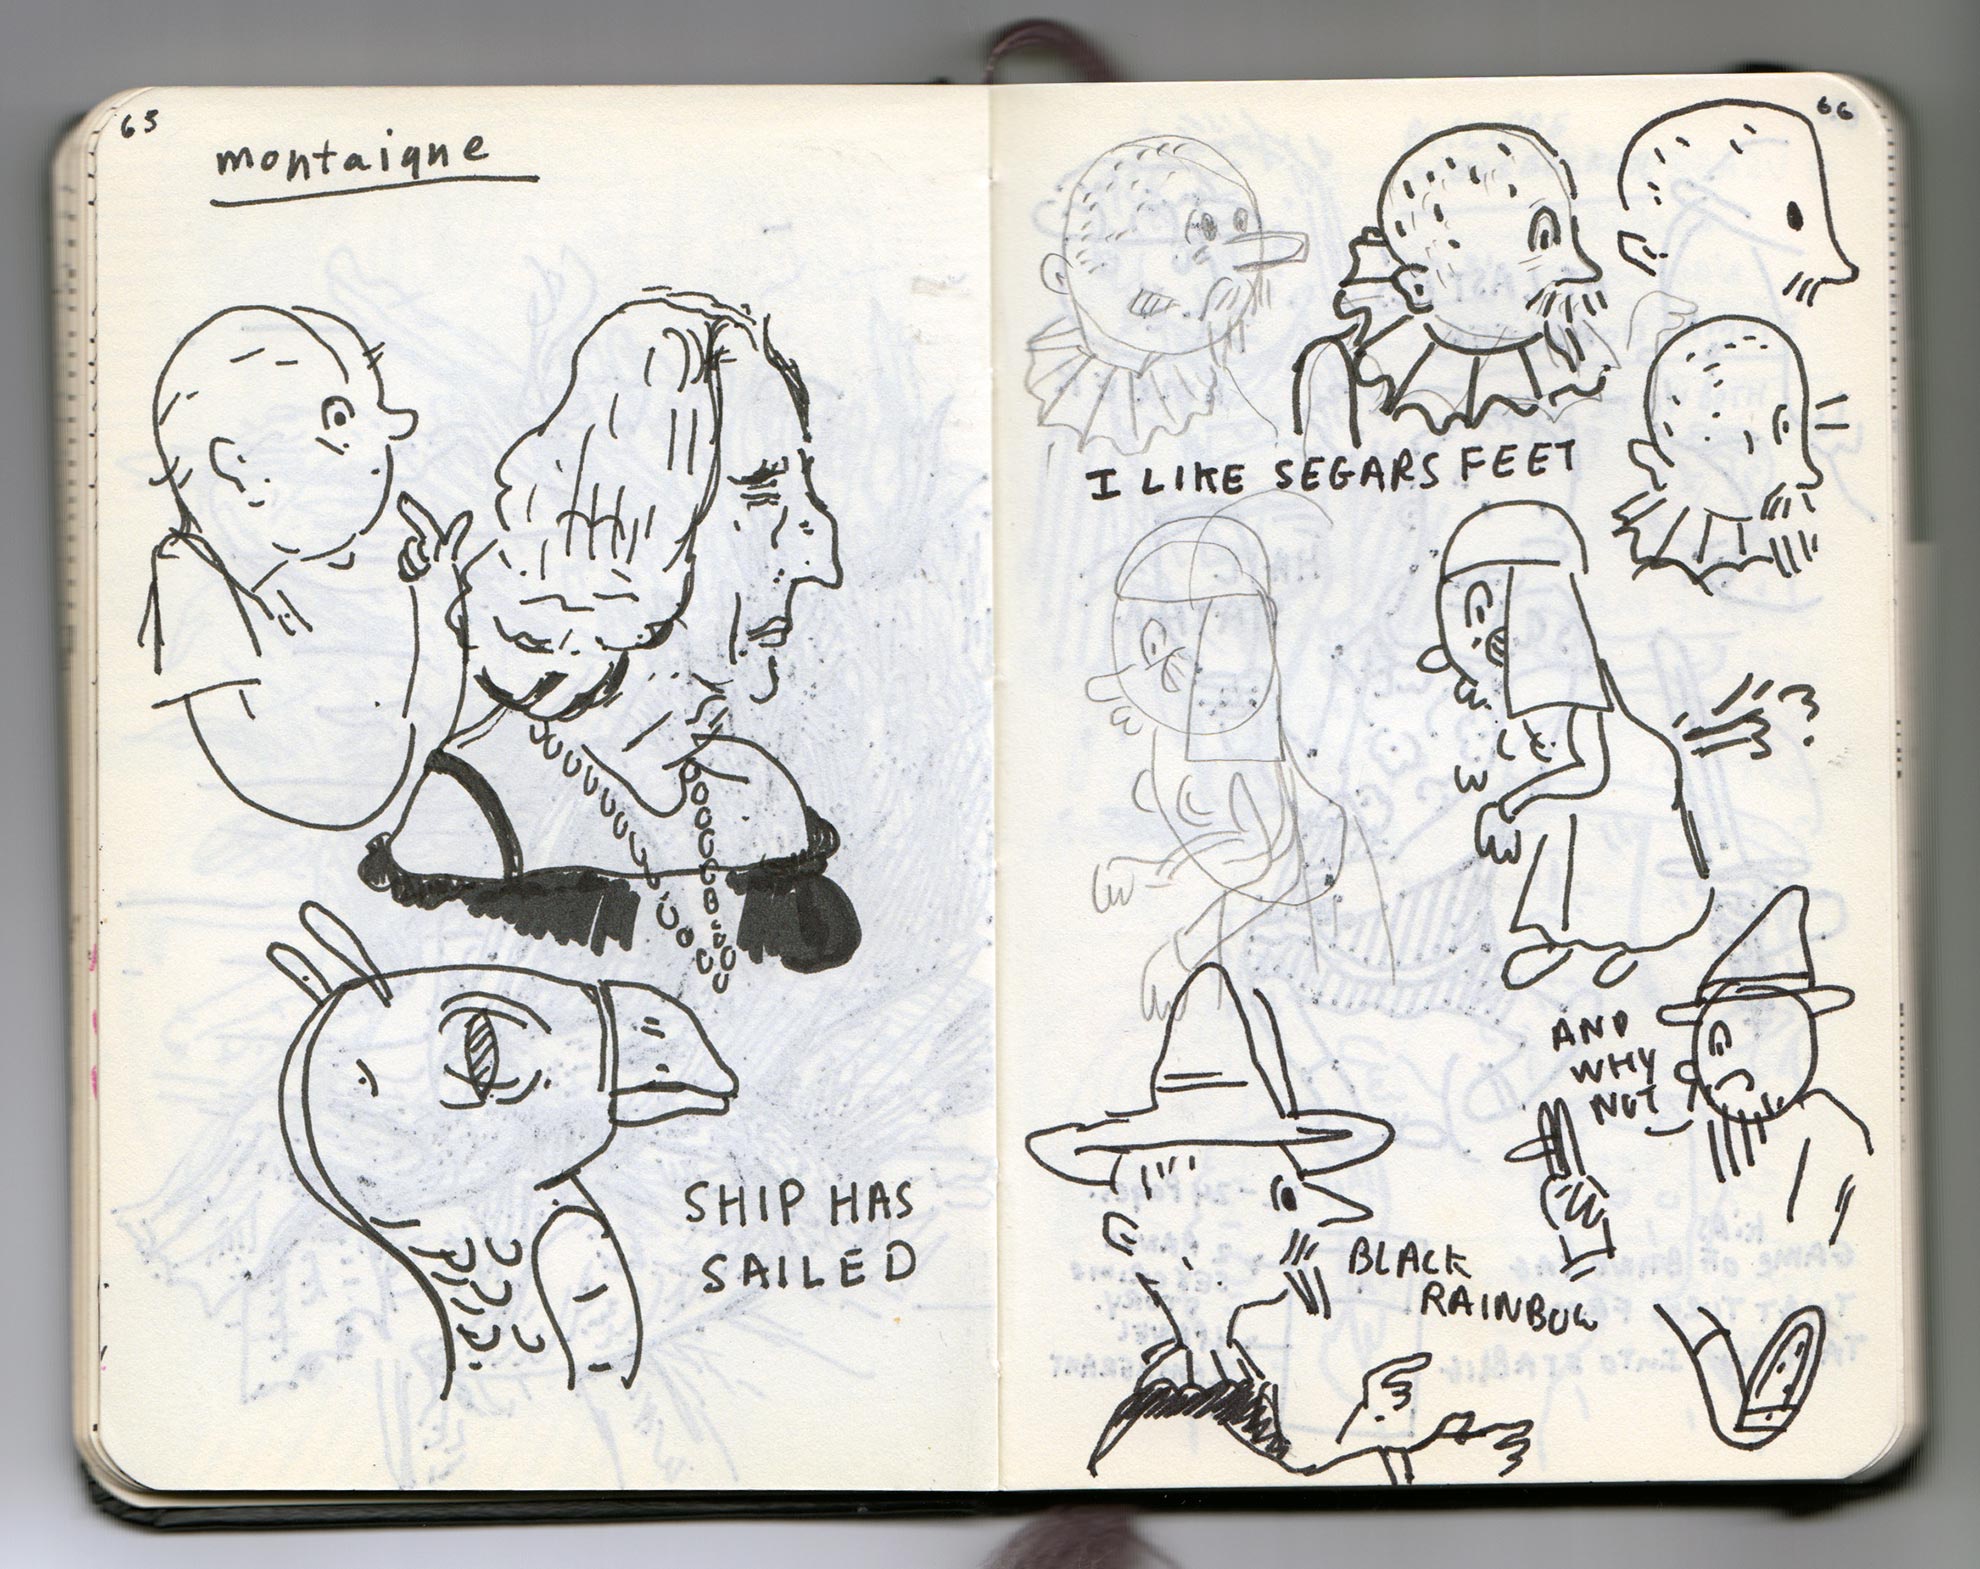 65
montaigne
SHIP HAS
SAILED
66
I LIKE SEGARS FEET
AND
WHY
NOT
BLACK
RAINBOW